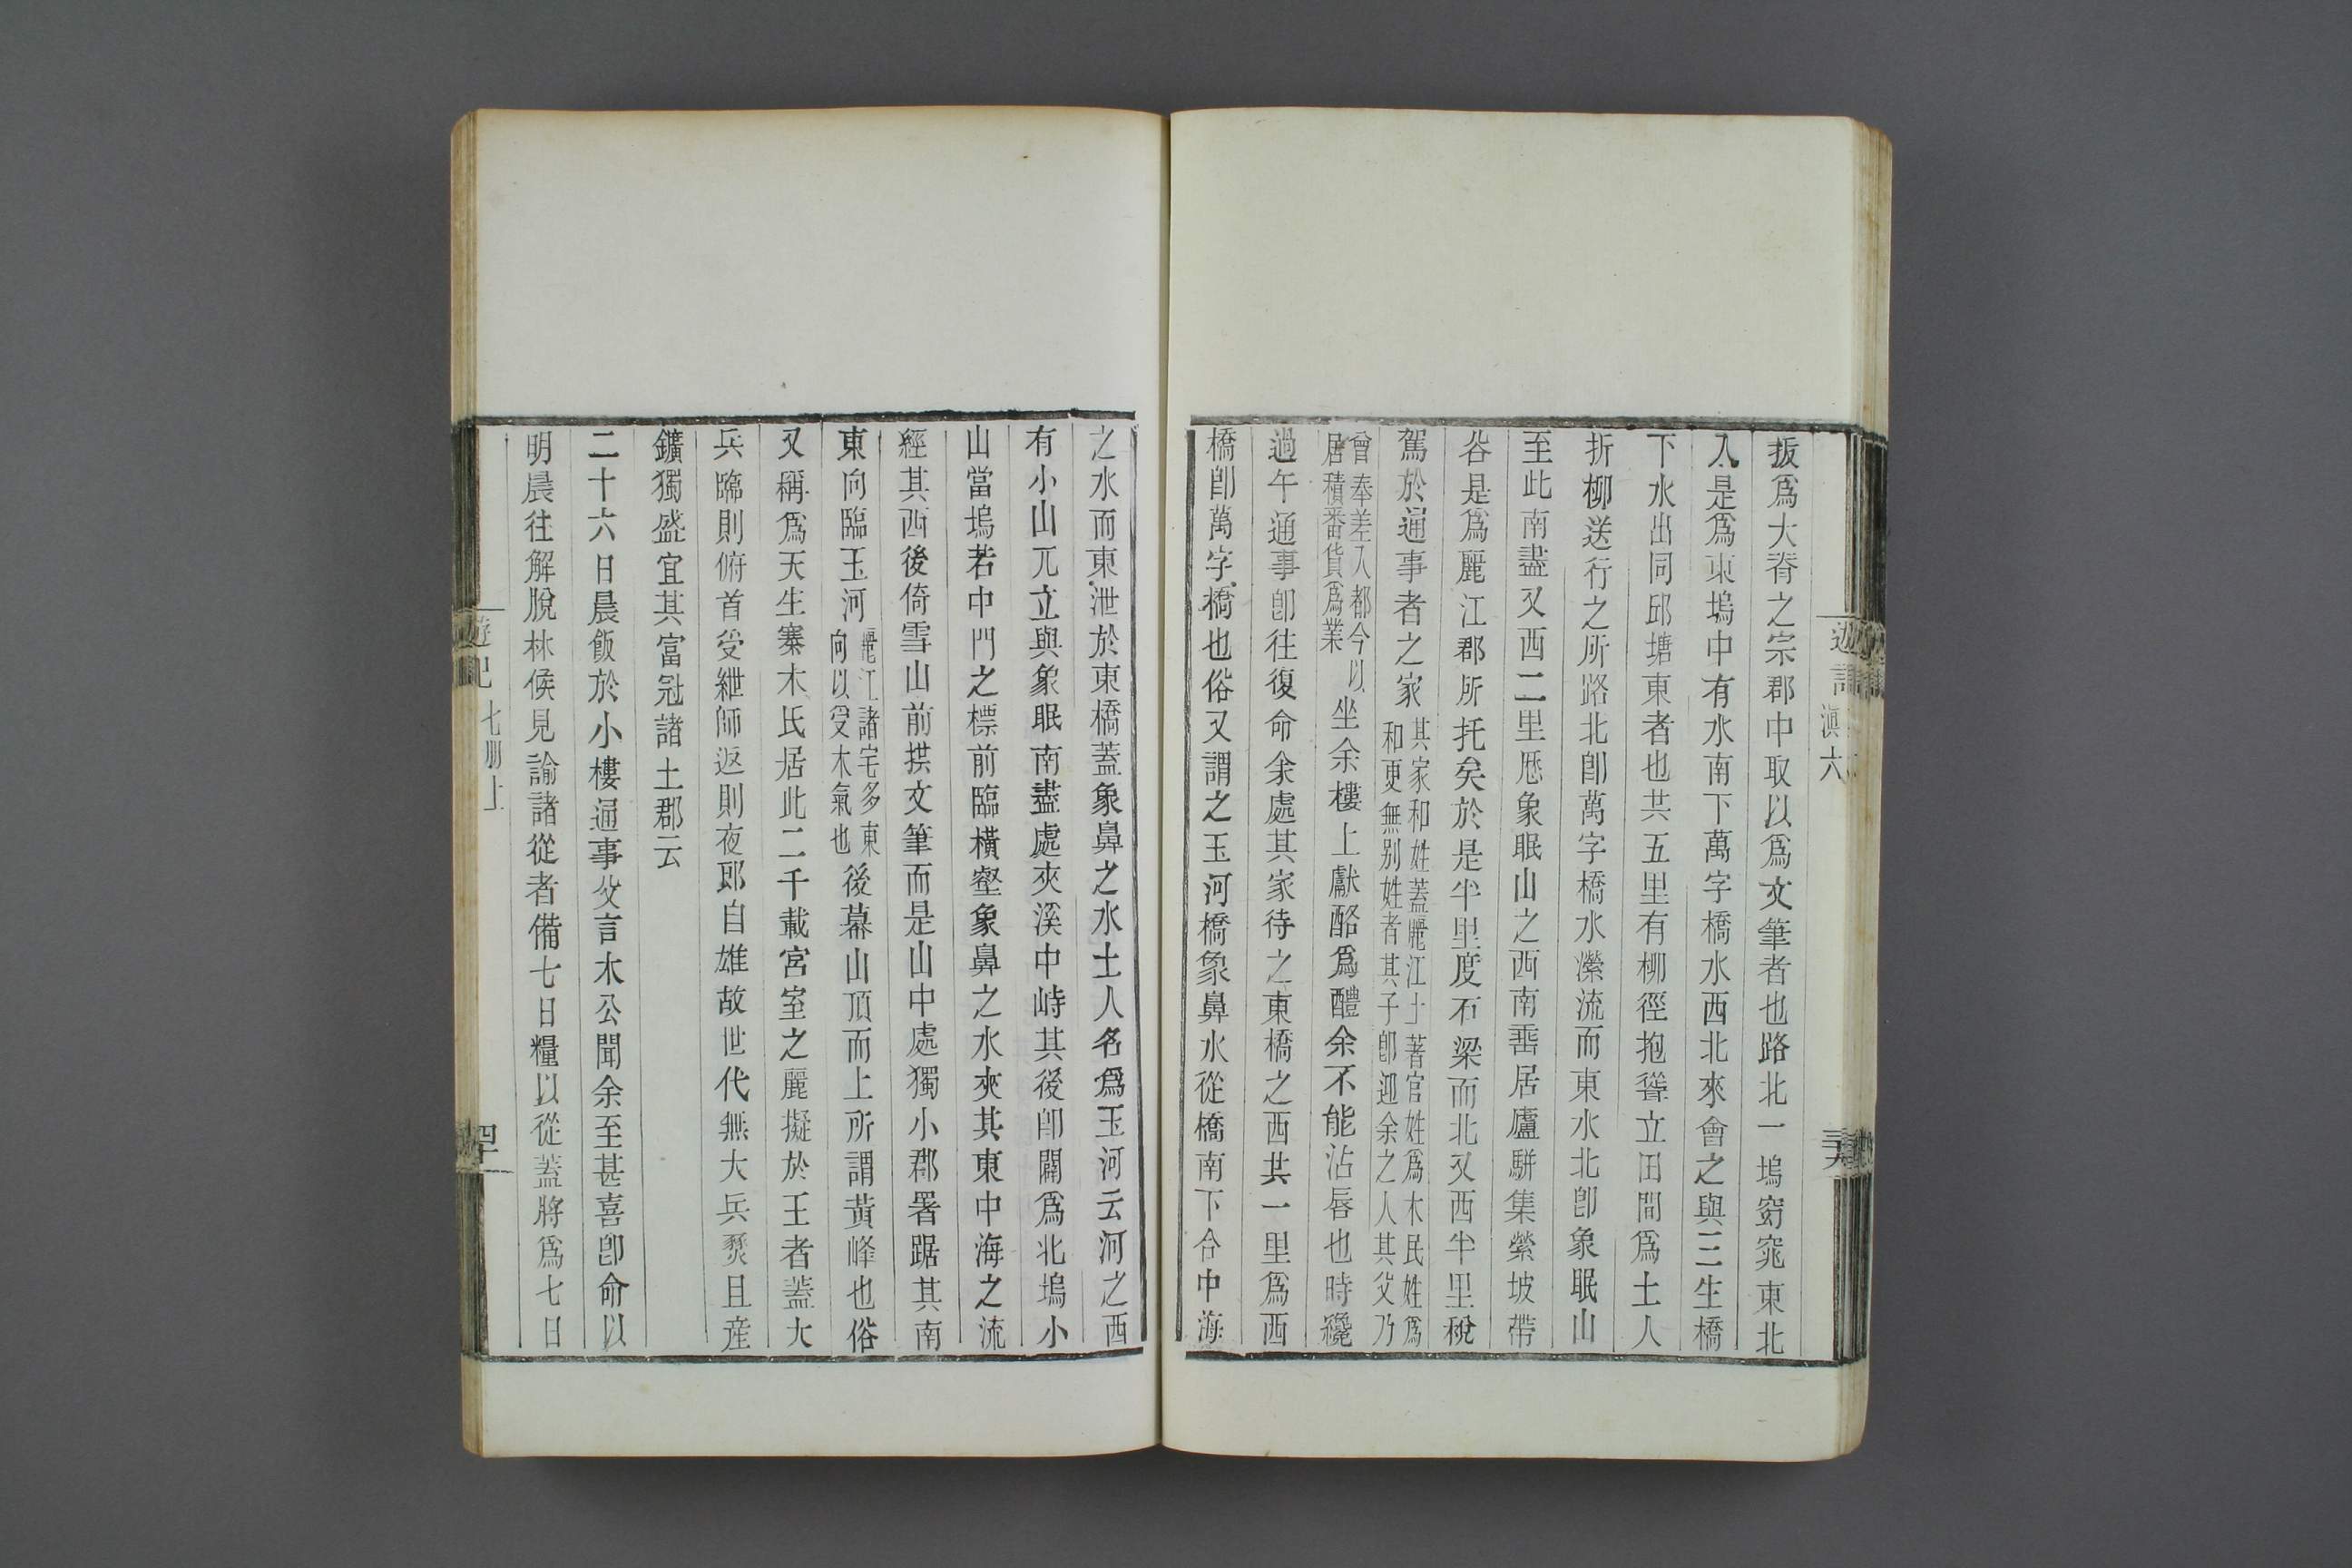 拔爲大脊之宗郡中取以爲文筆者也路北一塢窈窕東北
入是爲東塢中有水南下萬字橋水西北來會之與三生橋
下水出同邱塘東者也共五里有柳徑抱聳立田間爲土人
折柳送行之所路北卽萬字橋水濚流而東水北卽象眠山
至此南盡又西二里歷象眠山之西南垂居廬駢集縈坡帶
谷是爲麗江郡所托矣於是半里度石梁而北又西半里稅
駕於通事者之家其家和姓蓋麗江土著官姓爲木民姓爲
和更無别姓者其子卽迎余之人其父乃
曾奉差入都今以
居積番貨爲業坐余樓上獻酪爲醴余不能沾唇也時纔
過午通事卽往復命余處其家待之東橋之西共一里爲西
橋卽萬字橋也俗又謂之玉河橋象鼻水從橋南下合中海
遊記
滇六
之水而東泄於東橋蓋象鼻之水土人名爲玉河云河之西
有小山兀立與象眠南盡處夾溪中峙其後卽闢爲北塢小
山當塢若中門之標前臨橫壑象鼻之水夾其東中海之流
經其西後倚雪山前拱文筆而是山中處獨小郡署踞其南
東向臨玉河麗江諸宅多東
向以受木氣也後幕山頂而上所謂黃峰也俗
又稱爲天生寨木氏居此二千載宮室之麗擬於王者蓋大
兵臨則俯首受紲師返則夜郎自雄故世代無大兵燹且産
鑛獨盛宜其富冠諸土郡云
二十六日晨飯於小樓通事父言木公聞余至甚喜卽命以
明晨往解脫林候見諭諸從者備七日糧以從蓋將爲七日
遊記
七册上